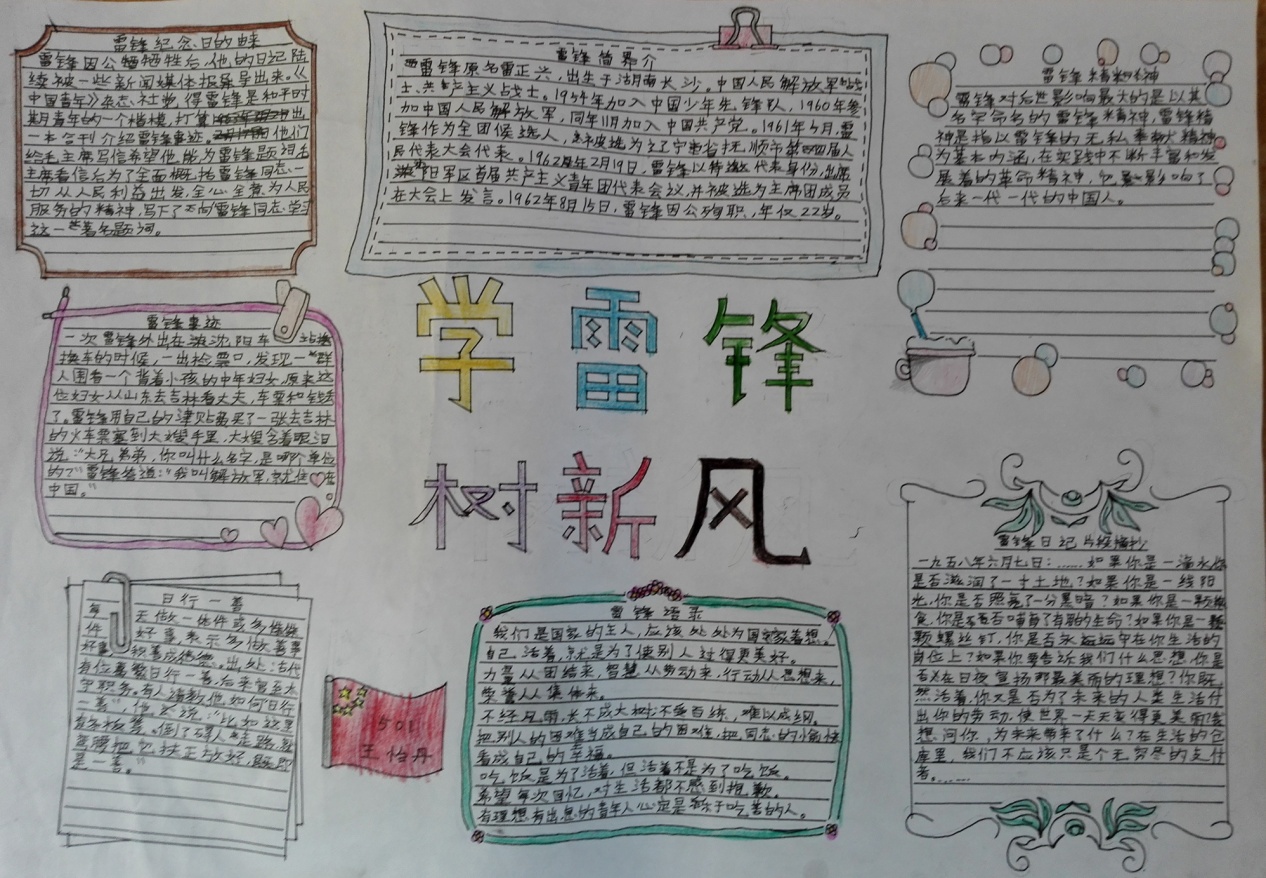 雷锋纪念日的由来
雷锋因公牺牲后,他的日记陆
续被一些新闻媒体报导出来。《
中国青年》杂志社觉得雷锋是和平时
期青年的一个楷模,打算出
一本合刊介绍雷锋事迹。他们
给毛主席写信希望他能为雷锋题词毛
主席看信后为了全面概括雷锋同志一
切从人民利益出发,全心全意为人民
服务的精神,写下了向雷锋同志学习
这一著名题词。
雷锋简介
雷锋原名雷正兴,出生于湖南长沙。中国人民解放军战
士、共产主义战士。1954年加入中国少年先锋队,1960年参
加中国人民解放军,同年11月加入中国共产党。1961年5月,雷
锋作为全团候选人,被选为辽宁省抚顺市第四届人
民代表大会代表。1962年2月19日,雷锋以特邀代表身份,出席
沈阳军区首届共产主义青年团代表会议,并被选为主席团成员
在大会上发言。1962年8月15日,雷锋因公殉职,年仅22岁。
雷锋精神
雷锋对后世影响最大的是以其
名字命名的雷锋精神,雷锋精
神是指以雷锋的无私奉献精神
为基本内涵,在实践中不断丰富和发
展着的革命精神,它影响了
后来一代一代的中国人。
学雷锋
树新风
雷锋事迹
一次雷锋外出在沈阳车站换
换车的时候,一出检票口,发现一群
人围着一个背着小孩的中年妇女,原来这
位妇女从山东去吉林看丈夫,车票和钱丢
了。雷锋用自己的津贴费买了一张去吉林
的火车票塞到大嫂手里,大嫂含着眼泪
说:“大兄弟,你叫什么名字,是哪个单位
的?”雷锋答道:“我叫解放军,就住在
中国。”
日行一善
每天做一件或多件
好事,表示多做善事
积善成德。出处:古代
有位葛繁日行一善,后来官至太
守职务。有人请教他如何日行
一善,他说:“比如这里
有条板凳。倒了碍人走路,就
弯腰把它扶正放好,既即
是一善。”
501
王怡丹
雷锋语录
我们是国家的主人,应该处处为国家着想。
自己活着,就是为了使别人过得更美好。
力量从团结来,智慧从劳动来,行动从思想来,
荣誉从集体来。
不经风雨,长不成大树;不受百练,难以成钢。
把别人的困难当成自己的困难,把同志的愉快
看成自己的幸福。
吃饭是为了活着,但活着不是为了吃饭。
希望每次回忆,对生活都不感到抱歉。
有理想有出息的青年人心定是乐于吃苦的人。
雷锋日记片段摘抄
一九五八年六月七日:……如果你是一滴水,你
是否滋润了一寸土地?如果你是一线阳
光,你是否照亮了一分黑暗?如果你是一颗粮
食,你是否哺育了有用的生命?如果你是一颗
颗螺丝钉,你是否永远守在你生活的
岗位上?如果你要告诉我们什么思想,你是
否在日夜宣扬那最美丽的理想?你既
然活着,你又是否为了未来的人类生活付
出你的劳动,使世界一天天变得更美丽?我
想问你,为未来带来了什么?在生活的仓
库里,我们不应该只是个无穷尽的支付
者。……